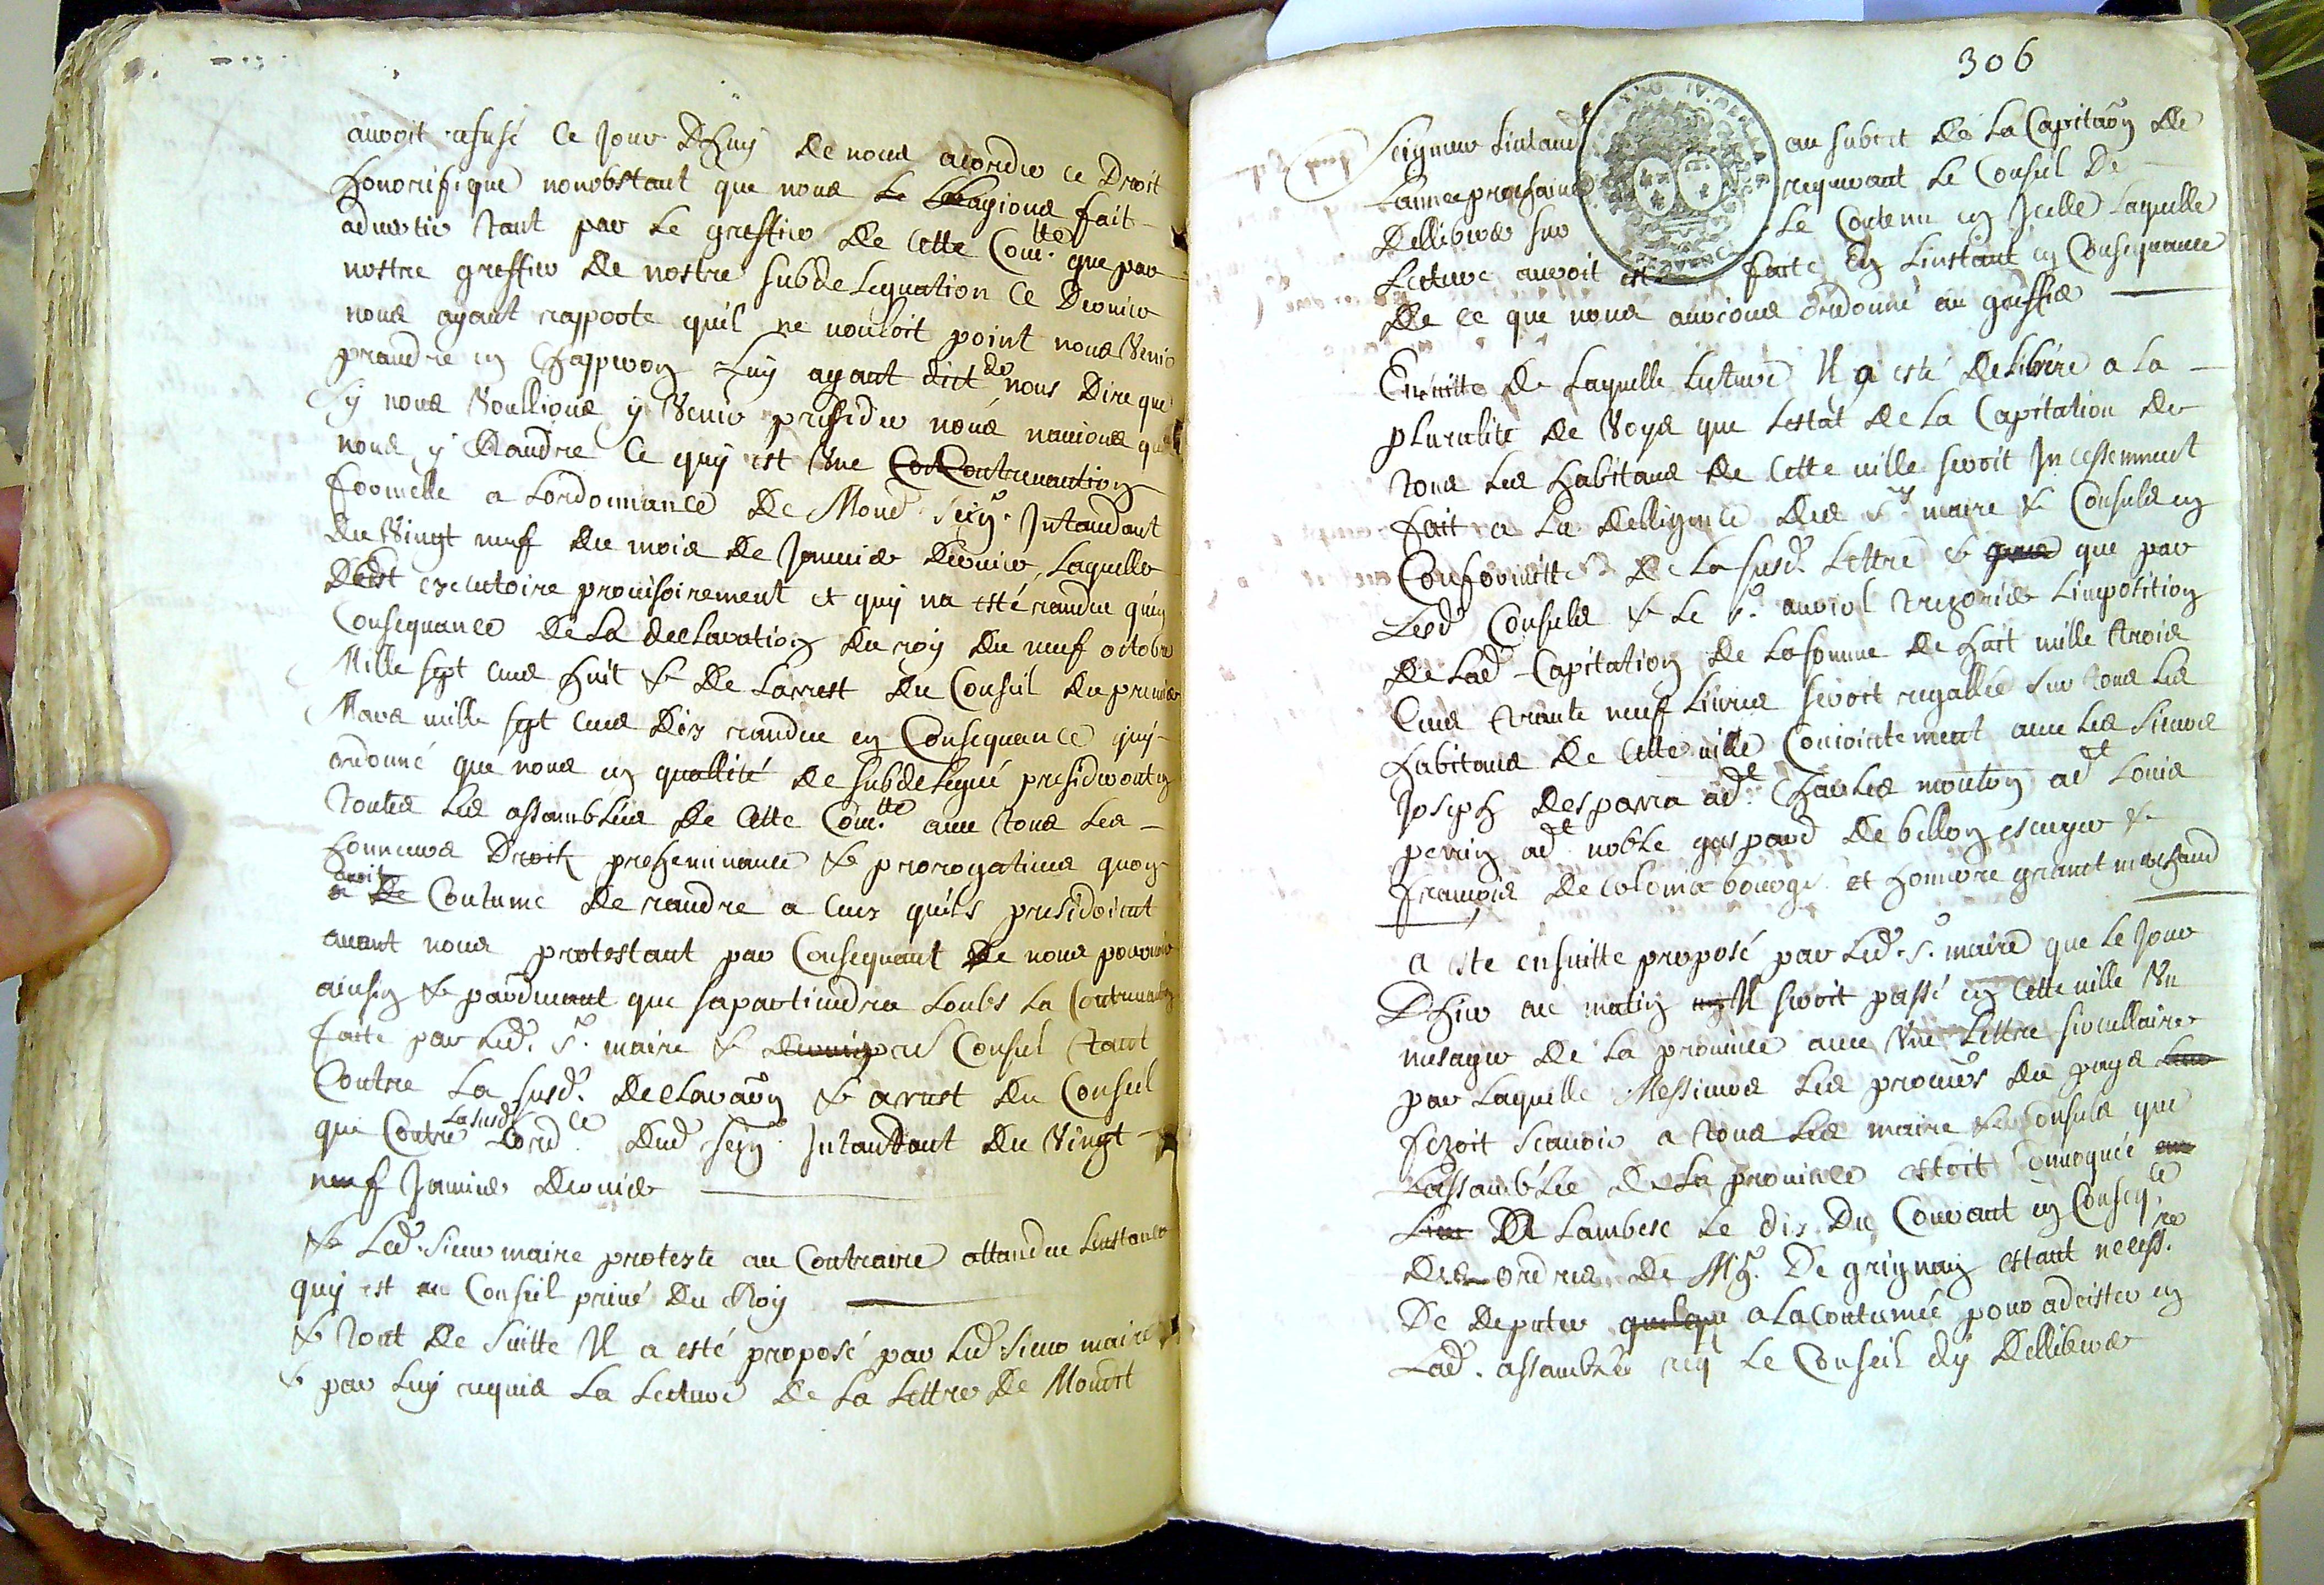 auroit refusé ce Jour dhuy de nous acorder ce droit
honorifique nonobstant que nous Le Lagions fait
advertir tant par Le greffier de cette Comtté. que par
nostre greffier de nostre subdelequation ce dernier
nous ayant rapporte quil ne vouloit point nous venir
prandre en chapperon Luy ayant dict de nous dire que
sy nous voullions y venir presider nous navions qua
nous y randre ce quy est une Con Contravantion
formelle a Lordonnance de Mond. Seigr. Intandant
du vingt neuf du mois de Janvier dernier Laquelle
est executoire provisoirement et quy na esté randue quen
Consequance de La declaration du roy du neuf octobre
Mille sept cens huit & de Larrest du Conseil du premier
Mars mille sept cens dix randue en Consequance quy
ordonné que nous en quallité de subdelegué presideront en
toutes Les assamblées de cette Comtté. avec tous Les
honneurs droits preheminance & prerogatives quon
avoit
a de Coutume de randre a ceux quils presidoient
avant nous protestant par Consequant de nous pourvoir
ainsin & pardevant que sapartiendra Loubs La Contravantion
faite par Led. Sr. maire & dernier Consul tant
Contre La susd. declaraon & arrest du Conseil
que Contre La susd. Lordce. dud seigr. Intandant du vingt
neuf Janvier dernier
& Led. Sieur maire proteste au Contraire attandue Linstance
quy est au Conseil privé du Roy
& tout de suitte Il a esté proposé par Led. Sieur maire
& par Luy requis La Lecture de La Lettre de Mondt
306
Seigneur Lintand au subect de La Capitaon de
Lannee prochaine requerant Le Conseil de
dellibere sur Le Contenu en Icelle Laquelle
Lecture auroit esté faite En Linstant en Consequance
de ce que nous aurions ordonné au greffie
Ensuitte de Laquelle Lecture Il a esté delibére a La
pluralité de voys que Lestat de La Capitation de
tous Les habitans de cette ville seroit Incessemment
fait a La delligence des Srs. maire & Consuls en
Conformitté de La susd. Lettre & que par
Lesd Consuls & Le Sr. auriol trezorier Limposition
de Lad Capitation de La somme de huit mille trois
cens trante neuf Livres seroit regallée sur tous Les
habitans de cette ville Conjointement avec Les Sieurs
Joseph desparra adt. Charles mouton adt Louis
perrin adt noble gaspard de billon escuyer &
francois de colonia bourgs. et honnore granet marchand
a este ensuitte proposé par Led. Sr. maire que Le Jour
dhier au matin Il seroit passé en cette ville Un
mesager de La province avec Une Lettre sircullaire
par Laquelle Messieurs Les procurs du pays
fezoit scavoir a tous Les maire & Consuls que
Lassamblée de La province estoit Convoquée au
Lieu de Lambesc Le dix du Courant en Conseqce
des ordres de Mgr. De grignan estant necessre
de deputer quelque a La coutumée pour adcister en
Lad. assamblée reqt Le Conseil dy dellibere